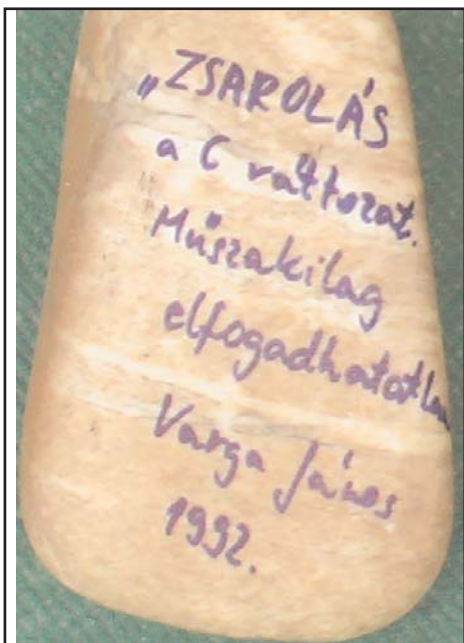 „ZSAROLÁS
a C változat.
Műszakilag
elfogadhatatlan
Varga János
1992.